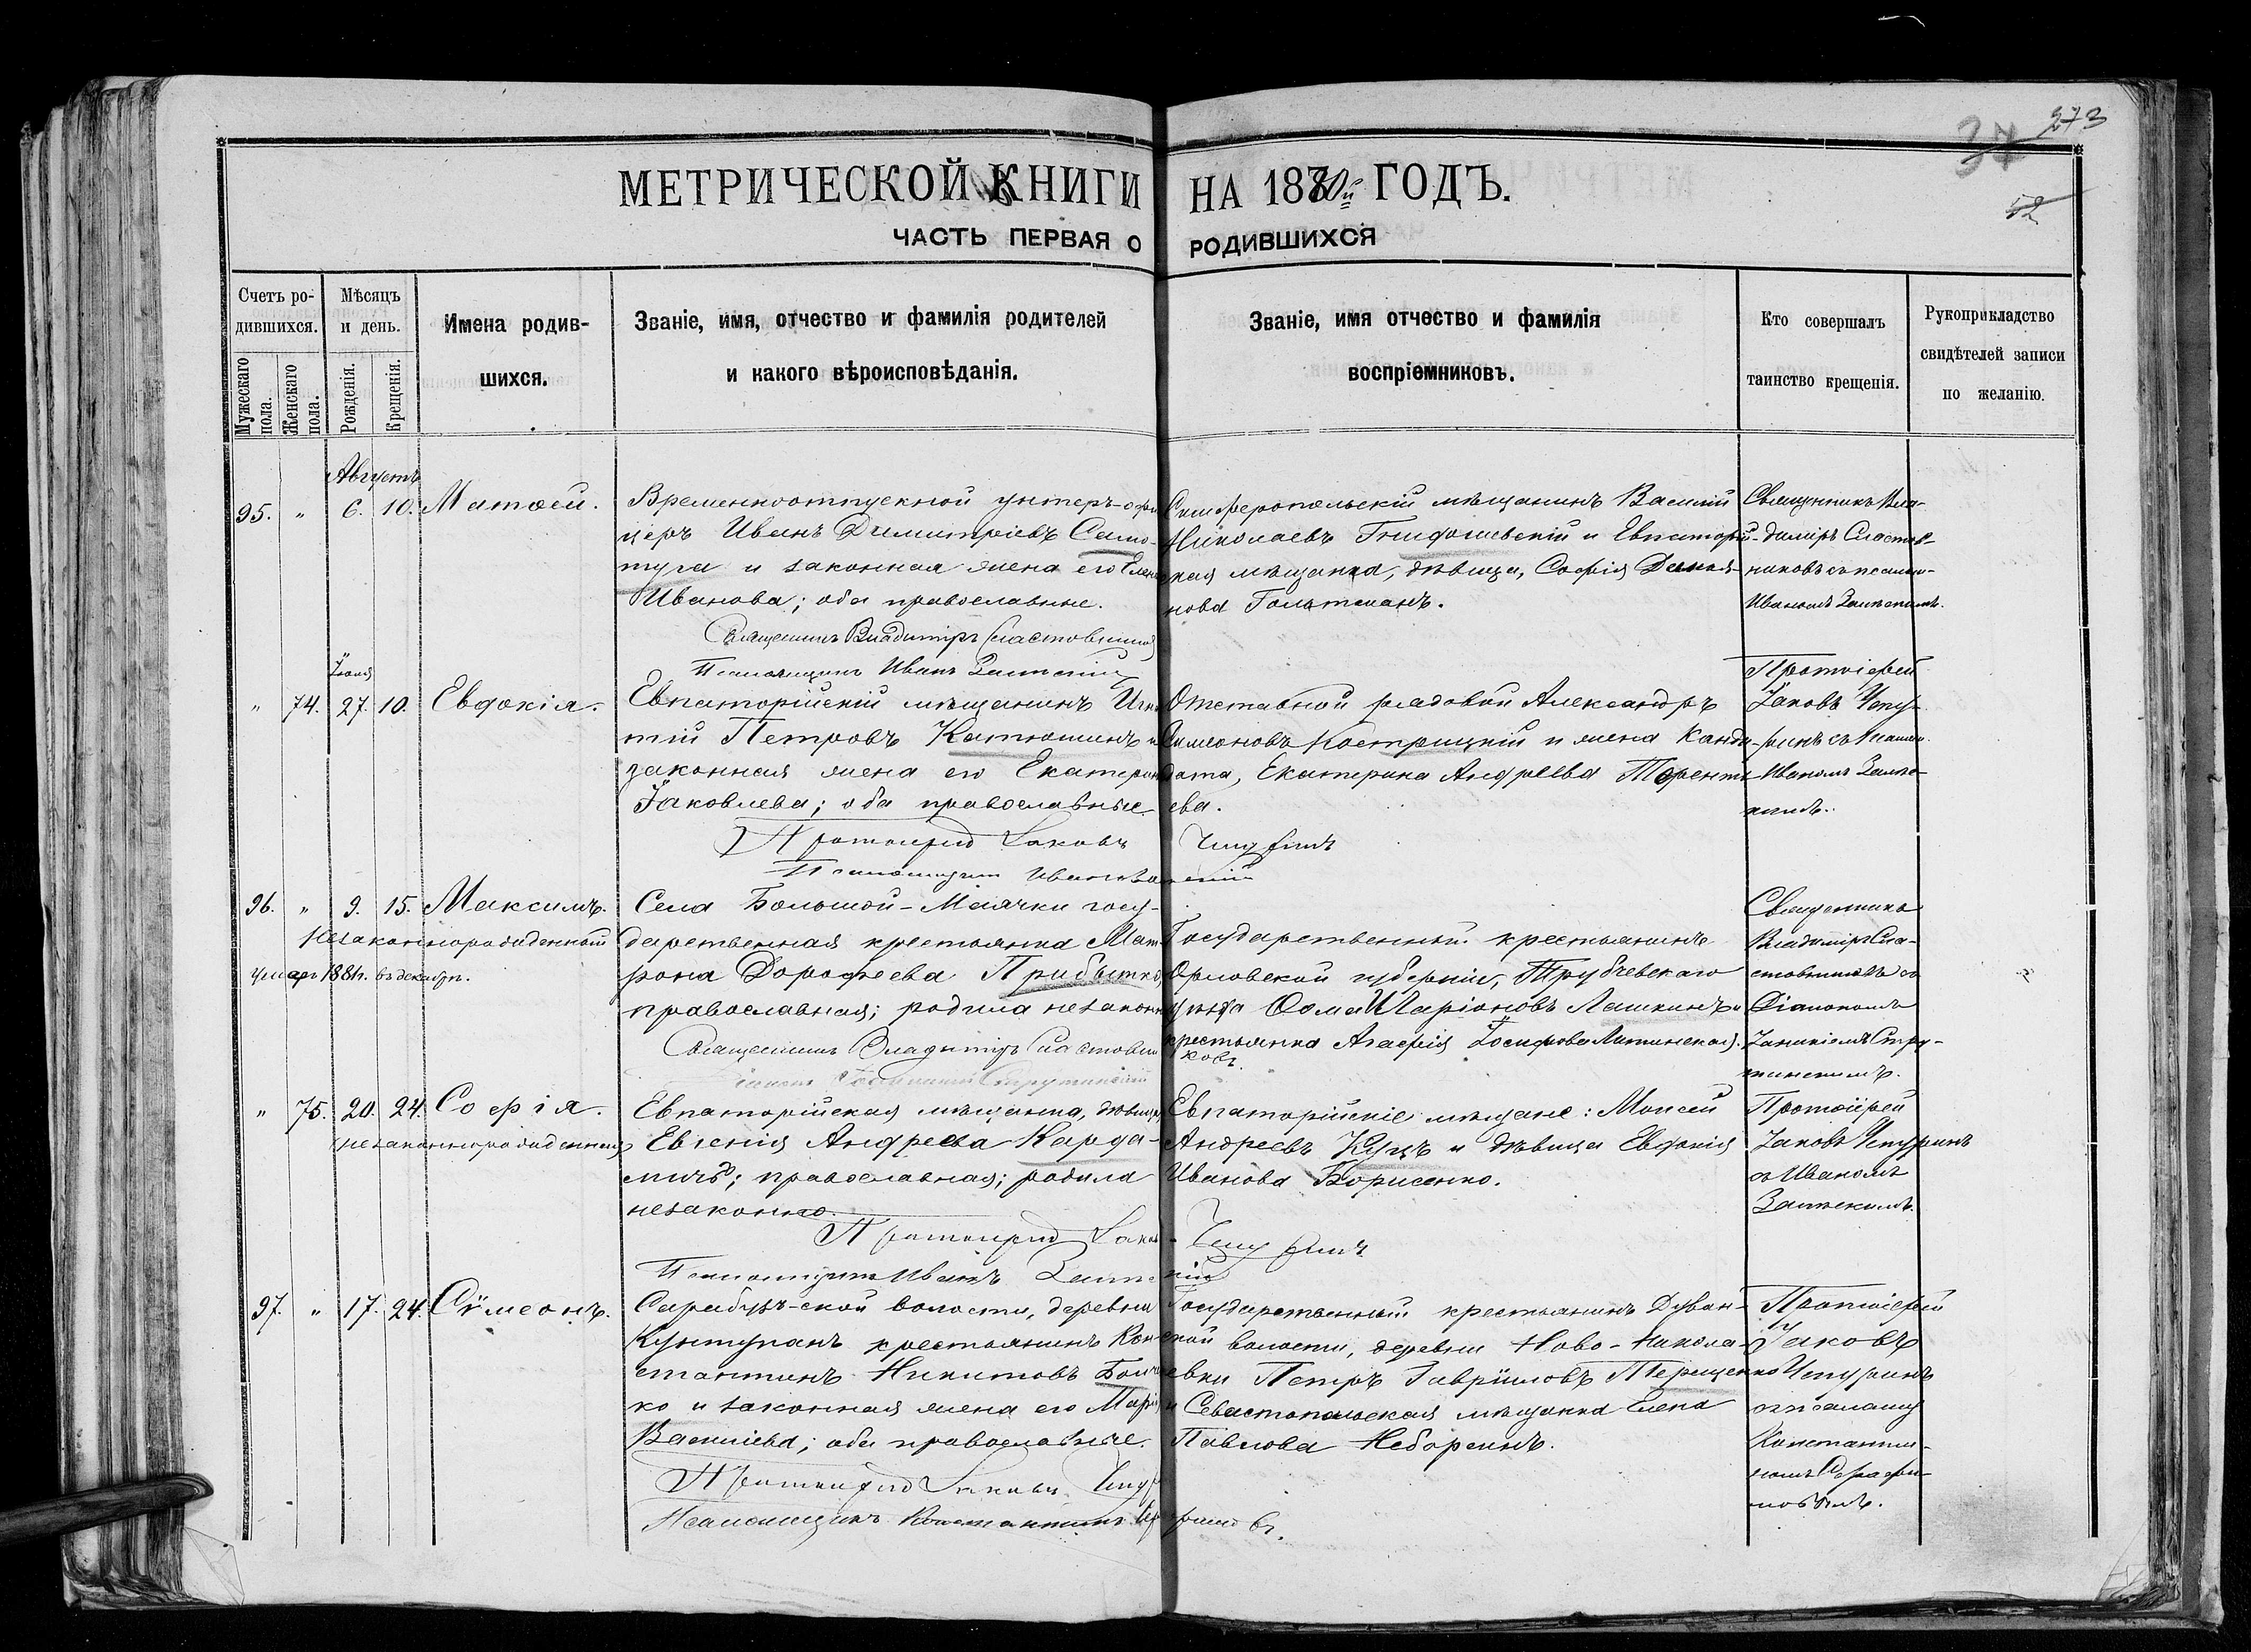 273
37
52
МЕТРИЧЕСКОЙ КНИГИ НА 1880й ГОДЪ.
ЧАСТЬ ПЕРВАЯ О РОДИВШИХСЯ
Счетъ ро-
дившихся.
Мужескаго пола.
Женскаго пола.
Мѣсяцъ
и день.
Рожденія.
Крещенія.
Имена родив-
шихся.
Званіе, имя, отчество и фамилія родителей
и какого вѣроисповѣданія.
Званіе, имя отчество и фамилія
воспріемниковъ.
Кто совершалъ
таинство крещенія.
Рукоприкладство
свидѣтелей записи
по желанію.
Августъ
95. " 6. 10. Матѳей.
Временноотпускной унтеръ-офи
церъ Иванъ Димитріевъ Само-
туга и законная жена его Елена
Иванова; оба православные.
Священникъ Владиміръ Сластовников
Псаломщикъ Иванъ
Симферопольскій мѣщанинъ Василій
Николаевъ и Евпаторій-
ская мѣщанка, дѣвица, Софія
нова Гольтманъ.
Священникъ Вла-
диміръ Сластов-
никовъ съ псалом-
Иваномъ
Іюля
" 74. 27. 10. Евдокія.
Евпаторійскій мѣщанинъ Игна
тій Петровъ Катюшинъ и
законная жена его Екатерин
Іаковлева; оба православные.
Протоіерей Іаковъ Чепуринъ
Псаломщикъ Иванъ
Отставной рядовой Александръ
Симеоновъ Кострицкій и жена канди-
дата, Екатерина Андреева Терентъ-
ева.
Протоіерей
Іаковъ Чепу-
ринъ съ псалом.
Иваномъ
96. " 9. 15. Максимъ.
Незаконнорожденный
умеръ 1881г. въ декабрѣ.
Села Большой-Маячки госу-
дарственная крестьянка Мат-
рона Дорофеева Прибытко,
православная; родила незаконн
Священникъ Владиміръ Сластовни
ковъ.
Государственный крестьянинъ
Орловской губерніи, Трубчевскаго
уѣзда Ѳома Иларіоновъ Лашкинъ и
крестьянка Агафія Іосифова Литинская.
Священникъ
Владиміръ Сла-
стовниковъ съ
Діакономъ
" 75. 20. 24. Софія.
(незаконнорожденная)
Евпаторійская мѣщанка, дѣвица
Евгенія Андреева Карда-
мичъ; православная; родила
незаконно.
Протоіерей Іаковъ Чепуринъ
Псаломщикъ Иванъ
Евпаторійскіе мѣщане: Моисей
Андреевъ Куцъ и дѣвица Евдокія
Иванова Борисенко.
Протоіерей
Іаковъ Чепуринъ
съ Иваномъ
97. " 17. 24. Сѵмеонъ.
Сарабузъ-ской волости, деревни
Кунтуганъ крестьянинъ Кон-
стантинъ Никитовъ
ко и законная жена его Марія
Васильева; оба православные.
Протоіерей Іаковъ Чепуринъ
Псаломщикъ Константинъ
Государственный крестьянинъ Дуван-
ской волости, деревни Ново-Никола-
евки Петръ Гавріиловъ Терещенко
и Севастопольская мѣщанка Елена
Павлова
Протоіерей
Іаковъ
Чепуринъ
съ псаломщ
Константи-
номъ